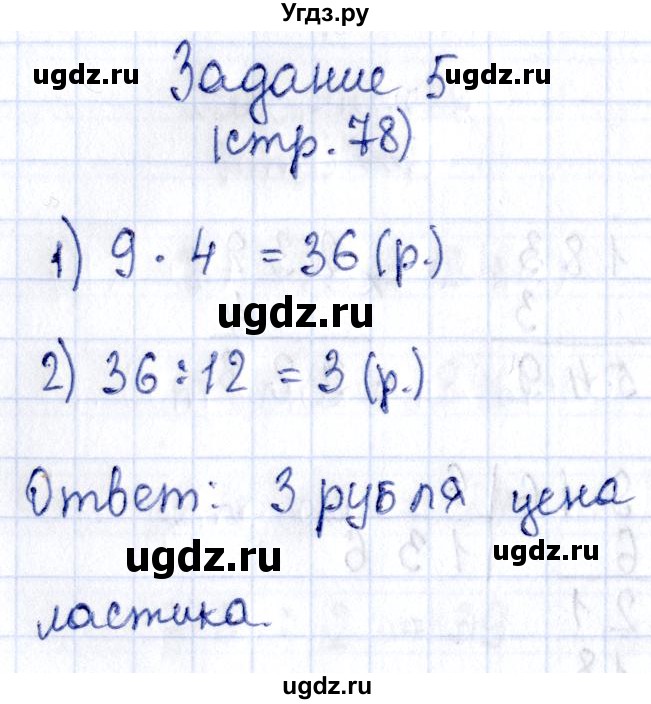 Угдз.ру
ugdz.ru ugdz.ru
Задание 5
(стр. 78)
1) 9 · 4 = 36 (р.)
ugdz.ru
2) 36 : 12 = 3 (р.)
Ответ: 3 рубля цена
ugdz.ru ugdz.ru
ластика.
ugdz.ru